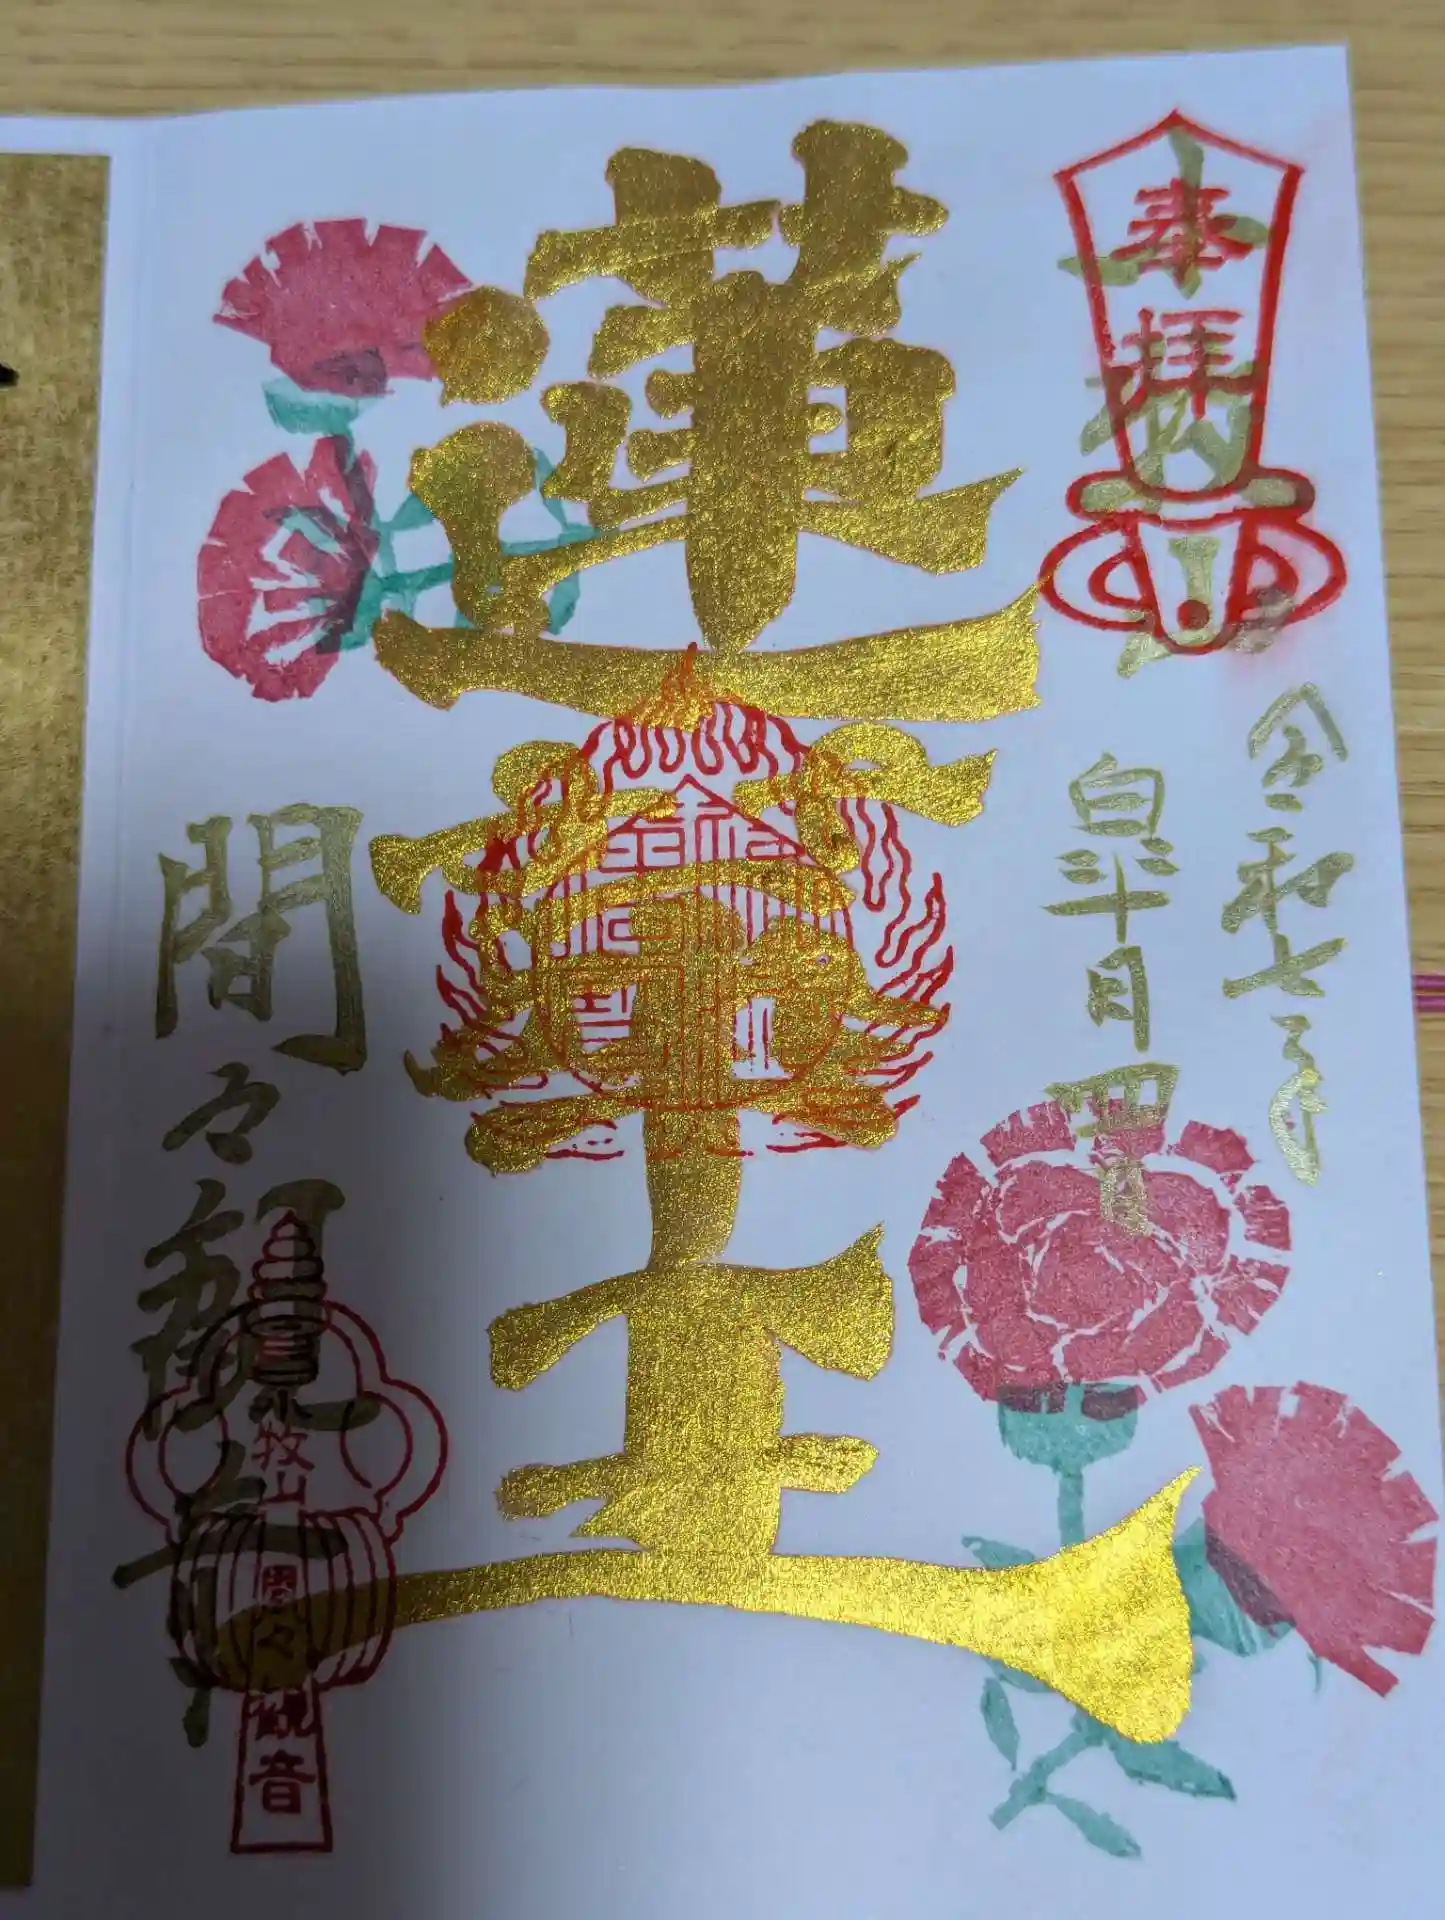 奉拝
令和七年
皐月四日
蓮華王
間々観音
小牧山
間々
観音